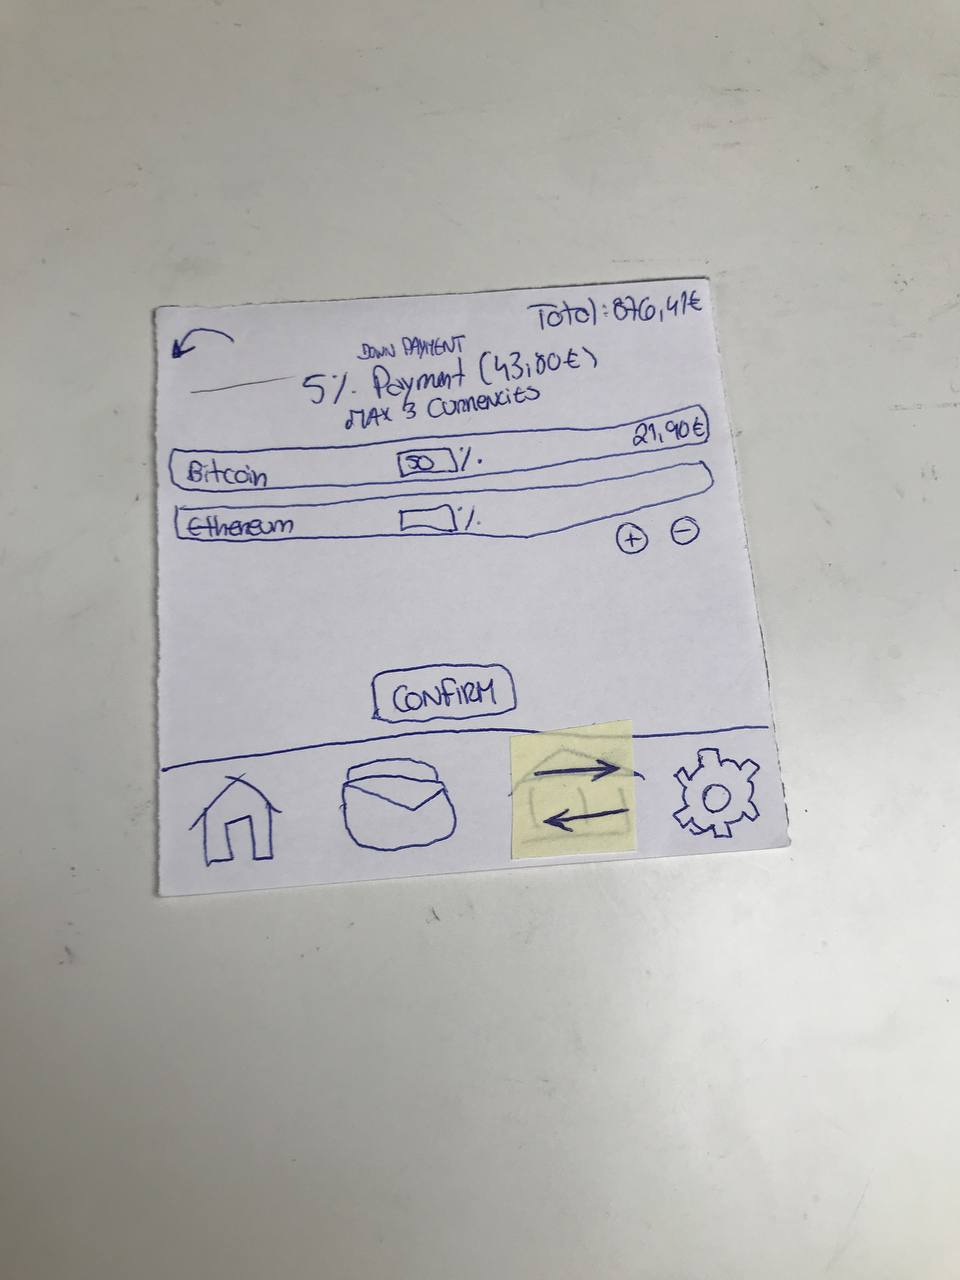 Total: 876,41€
DOWN PAYMENT
5% Payment (43,80€)
MAX 3 Currencies
Bitcoin 50 % 21,90€
Ethereum %
+ −
CONFIRM